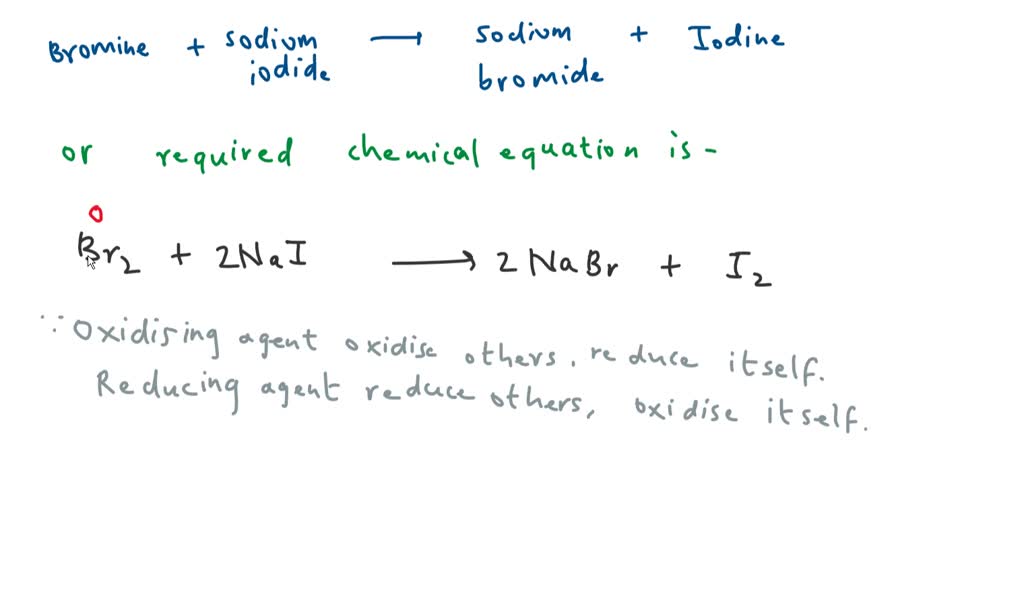 Bromine + sodium iodide → sodium bromide + Iodine
or required chemical equation is -
0
Br₂ + 2NaI → 2NaBr + I₂
∵ Oxidising agent oxidise others, reduce itself.
Reducing agent reduce others, oxidise itself.